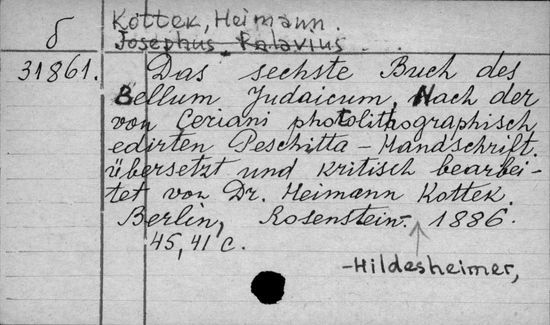 Kottek, Heimann.
б Josephus Ralavius
31861. Das sechste Buch des
Bellum Judaicum, Nach der
von Ceriani photolithographisch
edirten Peschitta-Handschrift.
übersetzt und kritisch bearbei-
tet von Dr. Heimann Kottek.
Berlin, Rosenstein. 1886.
45, 41 c.
-Hildesheimer,